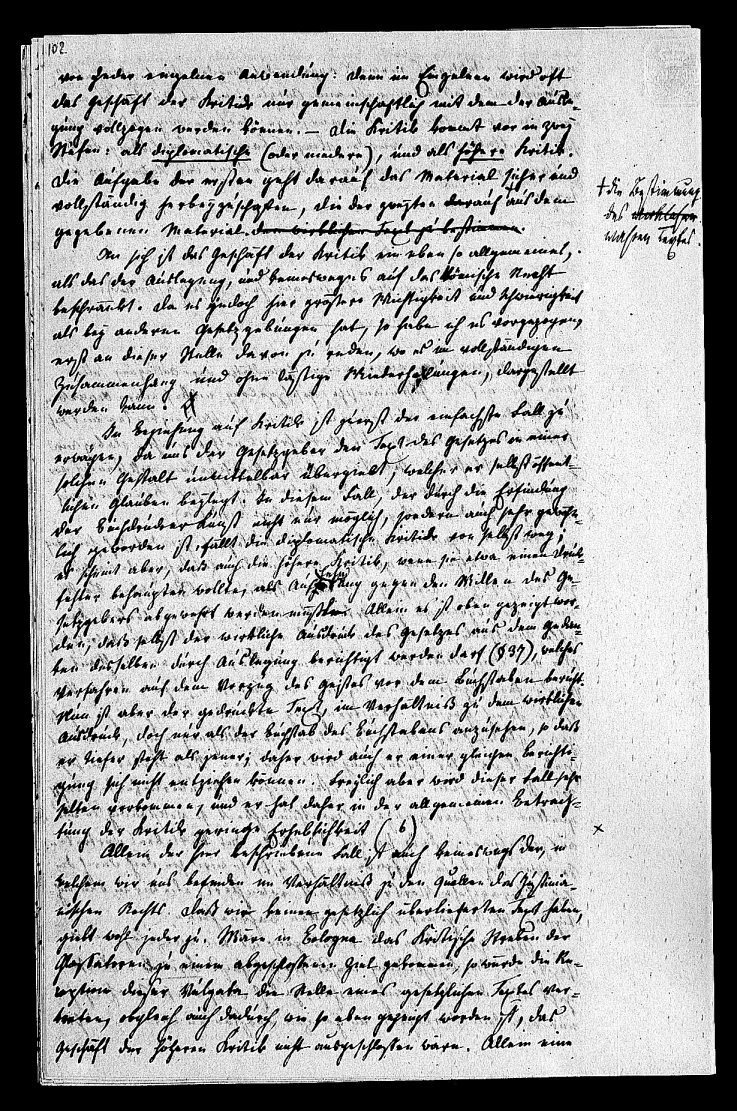 102
von jeder einzelnen Anwendung: denn im Einzelnen wird oft
das Geschäft der Kritik nur gemeinschaftlich mit dem der Ausle-
gung vollzogen werden können. — Die Kritik kommt vor in zwey
Stufen: als diplomatische (oder niedere), und als höhere Kritik.
Die Aufgabe der ersten geht darauf das Material sicher und
vollständig herbeyzuschaffen, die der zweyten darauf aus dem
gegebenen Material den wirklichen Text zu bestimmen.
† die Bestimmung
des wirklichen
wahren Textes.
An sich ist das Geschäft der Kritik ein eben so allgemeines,
als das der Auslegung, und keineswegs auf das Römische Recht
beschränkt. Da es jedoch hier größere Wichtigkeit und Schwierigkeit
als bey anderen Gesetzgebungen hat, so habe ich es vorgezogen,
erst an dieser Stelle davon zu reden, wo es im vollständigen
Zusammenhang und ohne lästige Wiederholungen, dargestellt
werden kann.
In Beziehung auf Kritik ist zuerst der einfachste Fall zu
erwägen, da uns der Gesetzgeber den Text des Gesetzes in einer
solchen Gestalt unmittelbar übergiebt, welcher er selbst öffent-
lichen Glauben beylegt. In diesem Fall, der durch die Erfindung
der Buchdruckerkunst nicht nur möglich, sondern auch sehr gewöhn-
lich geworden ist, fällt die diplomatische Kritik von selbst weg;
es scheint aber, daß auch die höhere Kritik, wenn sie etwa einen Druck-
fehler behaupten wollte, als Auflehnung gegen den Willen des Ge-
setzgebers abgewehrt werden müßte. Allein es ist oben gezeigt wor-
den, daß selbst der wirkliche Ausdruck des Gesetzes aus dem Gedan-
ken desselben durch Auslegung berichtigt werden darf (§ 37), welches
Verfahren auf dem Vorzug des Geistes vor dem Buchstaben beruht.
Nun ist aber der gedruckte Text, im Verhältniß zu dem wirklichen
Ausdruck, doch nur als der Buchstab des Buchstabens anzusehen, so daß
er tiefer steht als jener; daher wird auch er einer gleichen Berichti-
gung sich nicht entziehen können. Freylich aber wird dieser Fall sehr
selten vorkommen, und er hat daher in der allgemeinen Betrach-
tung der Kritik geringe Erheblichkeit (b)
×
Allein der hier beschriebene Fall ist auch keineswegs der, in
welchem wir uns befinden im Verhältniß zu den Quellen des Justinia-
nischen Rechts. Daß wir keinen gesetzlich überlieferten Text haben,
giebt wohl jeder zu. Wäre in Bologna das Kritische Streben der
Glossatoren zu einem abgeschlossenen Ziel gekommen, so würde die Re-
ception dieser Vulgata die Stelle eines gesetzlichen Textes ver-
treten, obgleich auch dadurch, wie so eben gezeigt worden ist, das
Geschäft der höheren Kritik nicht ausgeschlossen wäre. Allein eine